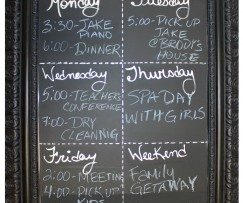 Monday
3:30-JAKE
PIANO
6:00-DINNER
Tuesday
5:00-PICK UP
JAKE
@BRODY'S
HOUSE
Wednesday
5:00-TEACHERS
CONFERENCE
7:00-DRY
CLEANING
Thursday
SPA DAY
WITH GIRLS
Friday
2:00-MEETING
4:00-PICK UP
KIDS
Weekend
Family
GETAWAY